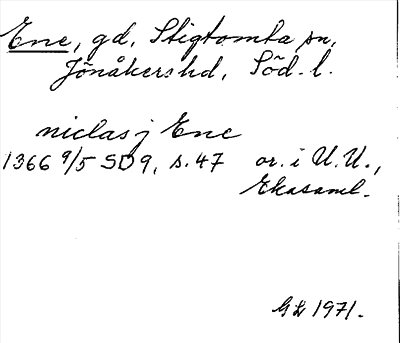 Ene, gd, Stigtomta sn,
Jönåkers hd, Söd. l.
niclas j Ene
1366 9/5 SD 9, s. 47 or. i U.U.,
Ekasaml.
GL 1971.